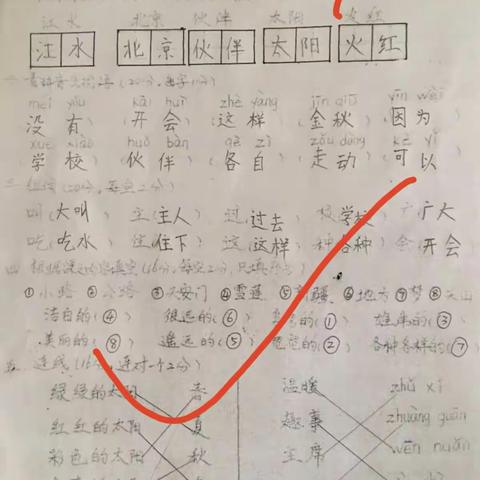 江水 北京 伙伴 太阳 火红
江水 北京 伙伴 太阳 火红
二、看拼音写词语(20分,每字1分)
méi yǒu kāi huī zhè yàng jīn qiū yīn wèi
(没有)(开会)(这样)(金秋)(因为)
xué xiào huǒ bàn gè zì zǒu dòng kě yǐ
(学校)(伙伴)(各自)(走动)(可以)
三、组词(20分,每空2分)
叫(大叫) 主(主人) 过(过去) 校(学校) 广(广大)
吃(吃水) 住(住下) 这(这样) 种(各种) 会(开会)
四、根据课文内容填空(16分,每空2分,只填序号)
①小路 ② ③天安门 ④雪莲 ⑤新疆 ⑥地方 ⑦梦 ⑧天山
洁白的(④) 很远的(⑥) (①) 雄伟的(③)
美丽的(⑧) 遥远的(⑤) (②) 各种各样的(⑦)
五、连线(16分,连对一个2分)
绿绿的太阳 春 温暖 zhǔ xí
红红的太阳 夏 趣事 zhuàng guān
彩色的太阳 秋 主席 wēn nuǎn